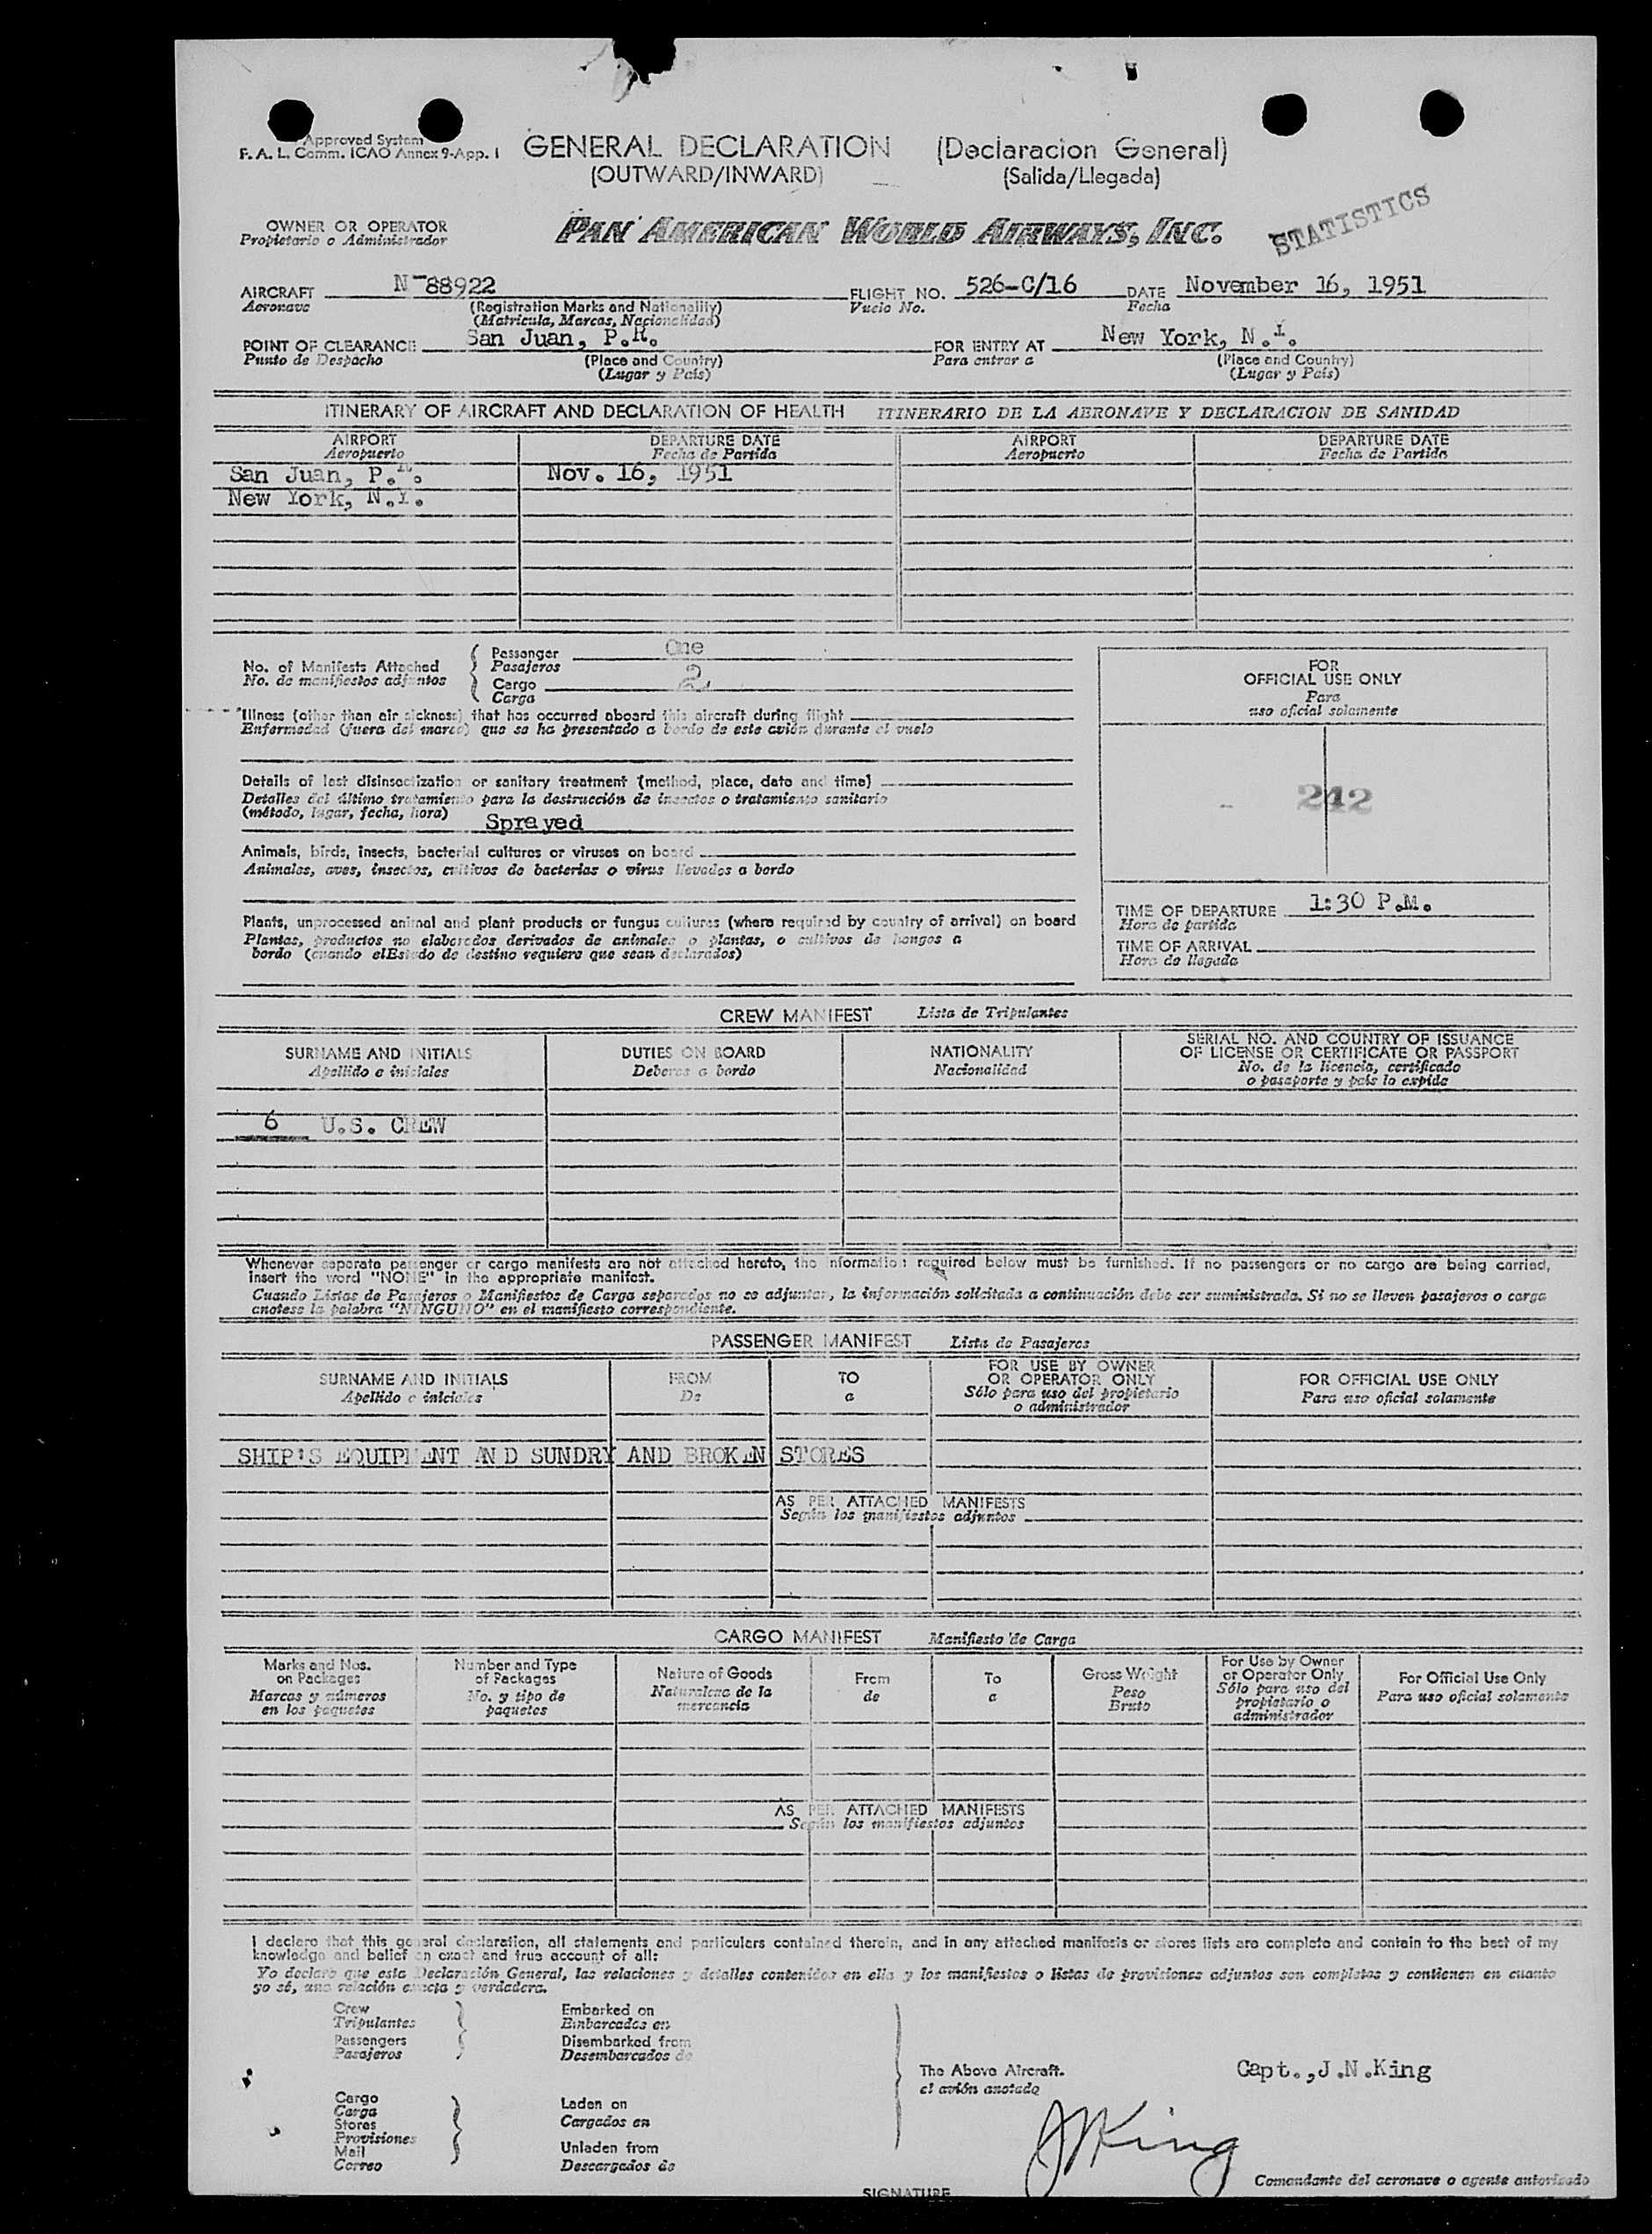 Approved System
F. A. L. Comm. ICAO Annex 9-App. I
GENERAL DECLARATION (Declaracion General)
(OUTWARD/INWARD) (Salida/Llegada)
OWNER OR OPERATOR
Propietario o Administrador
PAN AMERICAN WORLD AIRWAYS, INC.
STATISTICS
AIRCRAFT N-88922 FLIGHT NO. 526-C/16 DATE November 16, 1951
Aeronave (Registration Marks and Nationality) Vuelo No. Fecha
(Matricula, Marcas, Nacionalidad)
POINT OF CLEARANCE San Juan, P.R. FOR ENTRY AT New York, N.Y.
Punto de Despacho (Place and Country) Para entrar a (Place and Country)
(Lugar y País) (Lugar y País)
ITINERARY OF AIRCRAFT AND DECLARATION OF HEALTH ITINERARIO DE LA AERONAVE Y DECLARACION DE SANIDAD
AIRPORT DEPARTURE DATE AIRPORT DEPARTURE DATE
Aeropuerto Fecha de Partida Aeropuerto Fecha de Partida
San Juan, P.R. Nov. 16, 1951
New York, N.Y.
No. of Manifests Attached
No. de manifiestos adjuntos
Passenger One
Pasajeros
Cargo 2
Carga
Illness (other than air sickness) that has occurred aboard this aircraft during flight
Enfermedad (fuera del mareo) que se ha presentado a bordo de este avión durante el vuelo
Details of last disinsectization or sanitary treatment (method, place, date and time)
Detalles del último tratamiento para la destrucción de insectos o tratamiento sanitario
(método, lugar, fecha, hora) Sprayed
Animals, birds, insects, bacterial cultures or viruses on board
Animales, aves, insectos, cultivos de bacterias o virus llevados a bordo
Plants, unprocessed animal and plant products or fungus cultures (where required by country of arrival) on board
Plantas, productos no elaborados derivados de animales o plantas, o cultivos de hongos a
bordo (cuando elEstado de destino requiere que sean declarados)
FOR
OFFICIAL USE ONLY
Para
uso oficial solamente
242
TIME OF DEPARTURE 1:30 P.M.
Hora de partida
TIME OF ARRIVAL
Hora de llegada
CREW MANIFEST Lista de Tripulantes
SURNAME AND INITIALS DUTIES ON BOARD NATIONALITY SERIAL NO. AND COUNTRY OF ISSUANCE
OF LICENSE OR CERTIFICATE OR PASSPORT
Apellido e iniciales Deberes a bordo Nacionalidad No. de la licencia, certificado
o pasaporte y país lo expide
6 U.S. CREW
Whenever separate passenger or cargo manifests are not attached hereto, the information required below must be furnished. If no passengers or no cargo are being carried,
insert the word "NONE" in the appropriate manifest.
Cuando Listas de Pasajeros o Manifiestos de Carga separados no se adjuntan, la información solicitada a continuación debe ser suministrada. Si no se lleven pasajeros o carga
anotese la palabra "NINGUNO" en el manifiesto correspondiente.
PASSENGER MANIFEST Lista de Pasajeros
SURNAME AND INITIALS FROM TO FOR USE BY OWNER
OR OPERATOR ONLY FOR OFFICIAL USE ONLY
Apellido e iniciales De a Sólo para uso del propietario
o administrador Para uso oficial solamente
SHIP'S EQUIPMENT AND SUNDRY AND BROKEN STORES
AS PER ATTACHED MANIFESTS
Según los manifiestos adjuntos
CARGO MANIFEST Manifiesto de Carga
Marks and Nos.
on Packages
Marcas y números
en los paquetes
Number and Type
of Packages
No. y tipo de
paquetes
Nature of Goods
Naturaleza de la
mercancia
From
de
To
a
Gross Weight
Peso
Bruto
For Use by Owner
or Operator Only
Sólo para uso del
propietario o
administrador
For Official Use Only
Para uso oficial solamente
AS PER ATTACHED MANIFESTS
Según los manifiestos adjuntos
I declare that this general declaration, all statements and particulars contained therein, and in any attached manifests or stores lists are complete and contain to the best of my
knowledge and belief an exact and true account of all:
Yo declaro que esta Declaración General, las relaciones y detalles contenidos en ella y los manifiestos o listas de provisiones adjuntos son completos y contienen en cuanto
yo sé, una relación exacta y verdadera.
Crew
Tripulantes
Passengers
Pasajeros
Embarked on
Embarcados en
Disembarked from
Desembarcados de
Cargo
Carga
Stores
Provisiones
Mail
Correo
Laden on
Cargados en
Unladen from
Descargados de
The Above Aircraft.
el avión anotado
Capt.,J.N.King
JNKing
Comandante del aeronave o agente autorizado
SIGNATURE